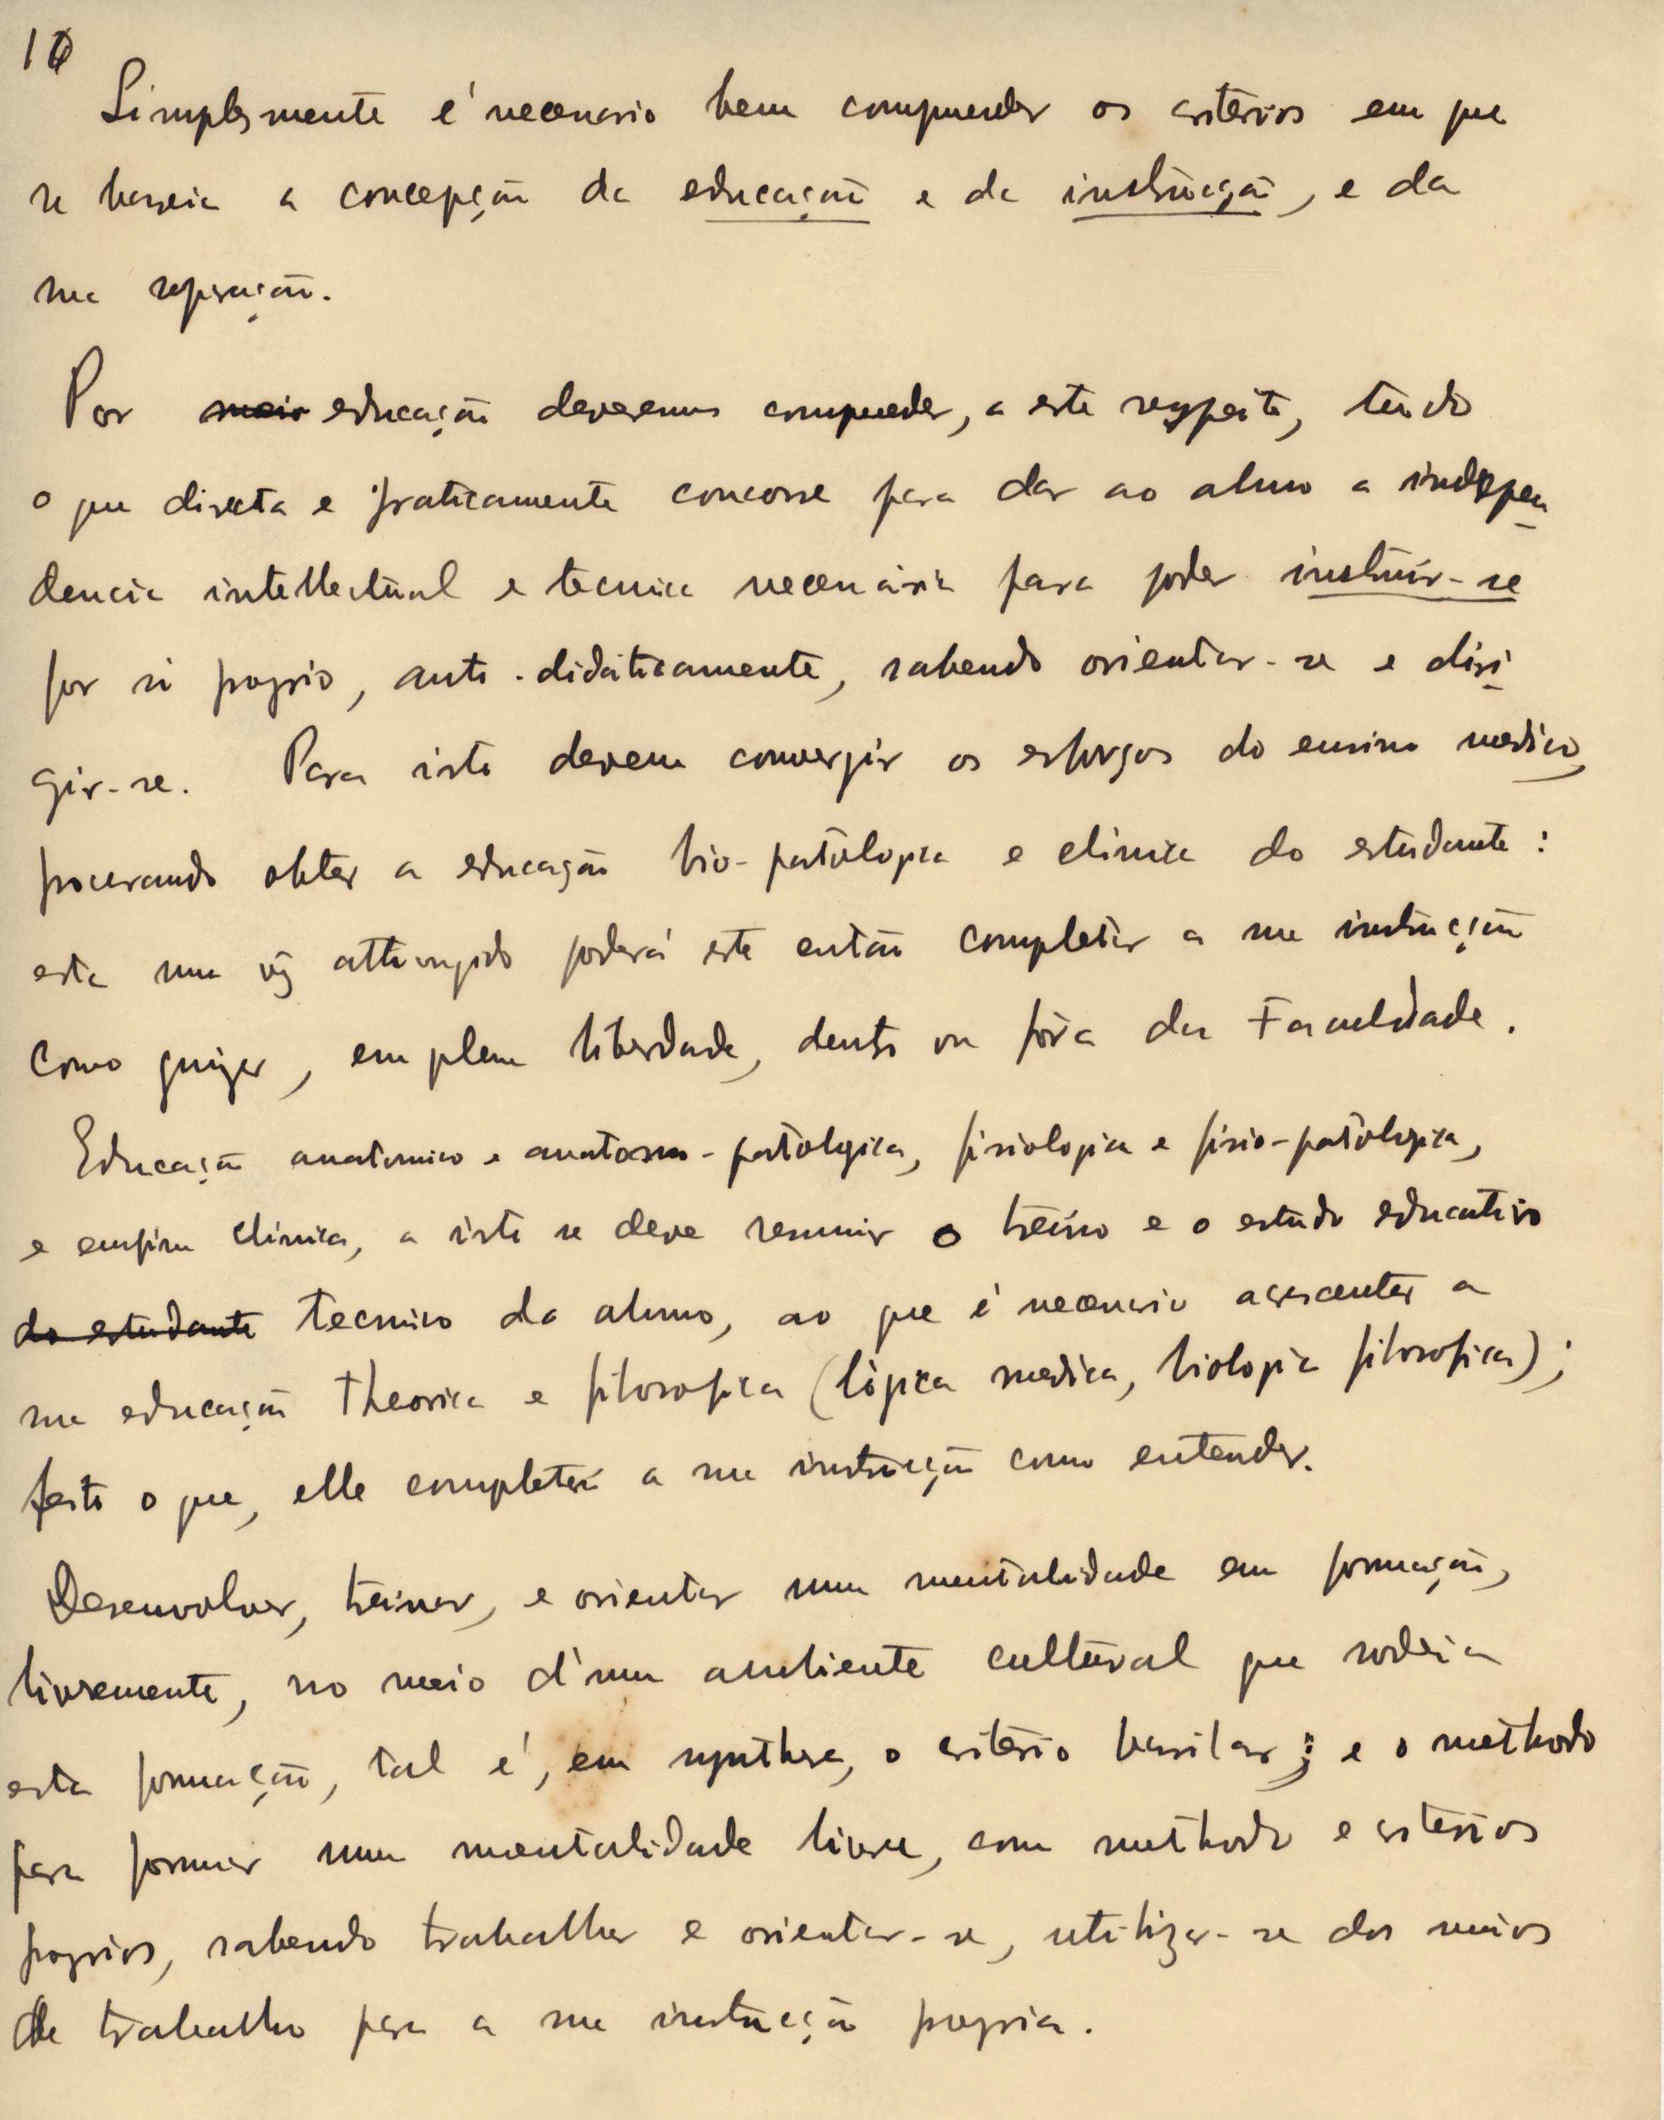 16
Simplesmente é necessario bem comprender os critérios em que
se baseia a concepção da educação e da instrucção, e da
sua separação.
Por mais educação deveremos comprender, a este respeito, tudo
o que directa e praticamente concorre para dar ao aluno a indepen
dencia intellectual e tecnica necessária para poder instruir-se
por si proprio, auto-didáticamente, sabendo orientar-se e diri
gir-se. Para isto devem convergir os esforços do ensino medico,
procurando obter a educação bio-patologica e clinica do estudante:
esta uma vez attingido poderá este então completar a sua instrucção
como quizer, em plena liberdade, dentro ou fóra da Faculdade.
Educação anatomico e anatomo-patologica, fisiologica e fisio-patologica,
e emfim clinica, a isto se deve resumir o treino e o estudo educativo
do estudante tecnico do aluno, ao que é necessario acrescentar a
sua educação theorica e filosofica (lógica medica, biologia filosofica);
feito o que, elle completará a sua instrucção como entender.
Desenvolver, treinar, e orientar uma mentalidade em formação,
livremente, no meio d'um ambiente cultural que rodeia
esta formação, tal é, em synthese, o critério basilar; e o methodo
para formar uma mentalidade livre, com methodo e criterios
proprios, sabendo trabalhar e orientar-se, utilizar-se dos meios
de trabalho para a sua instrucção propria.